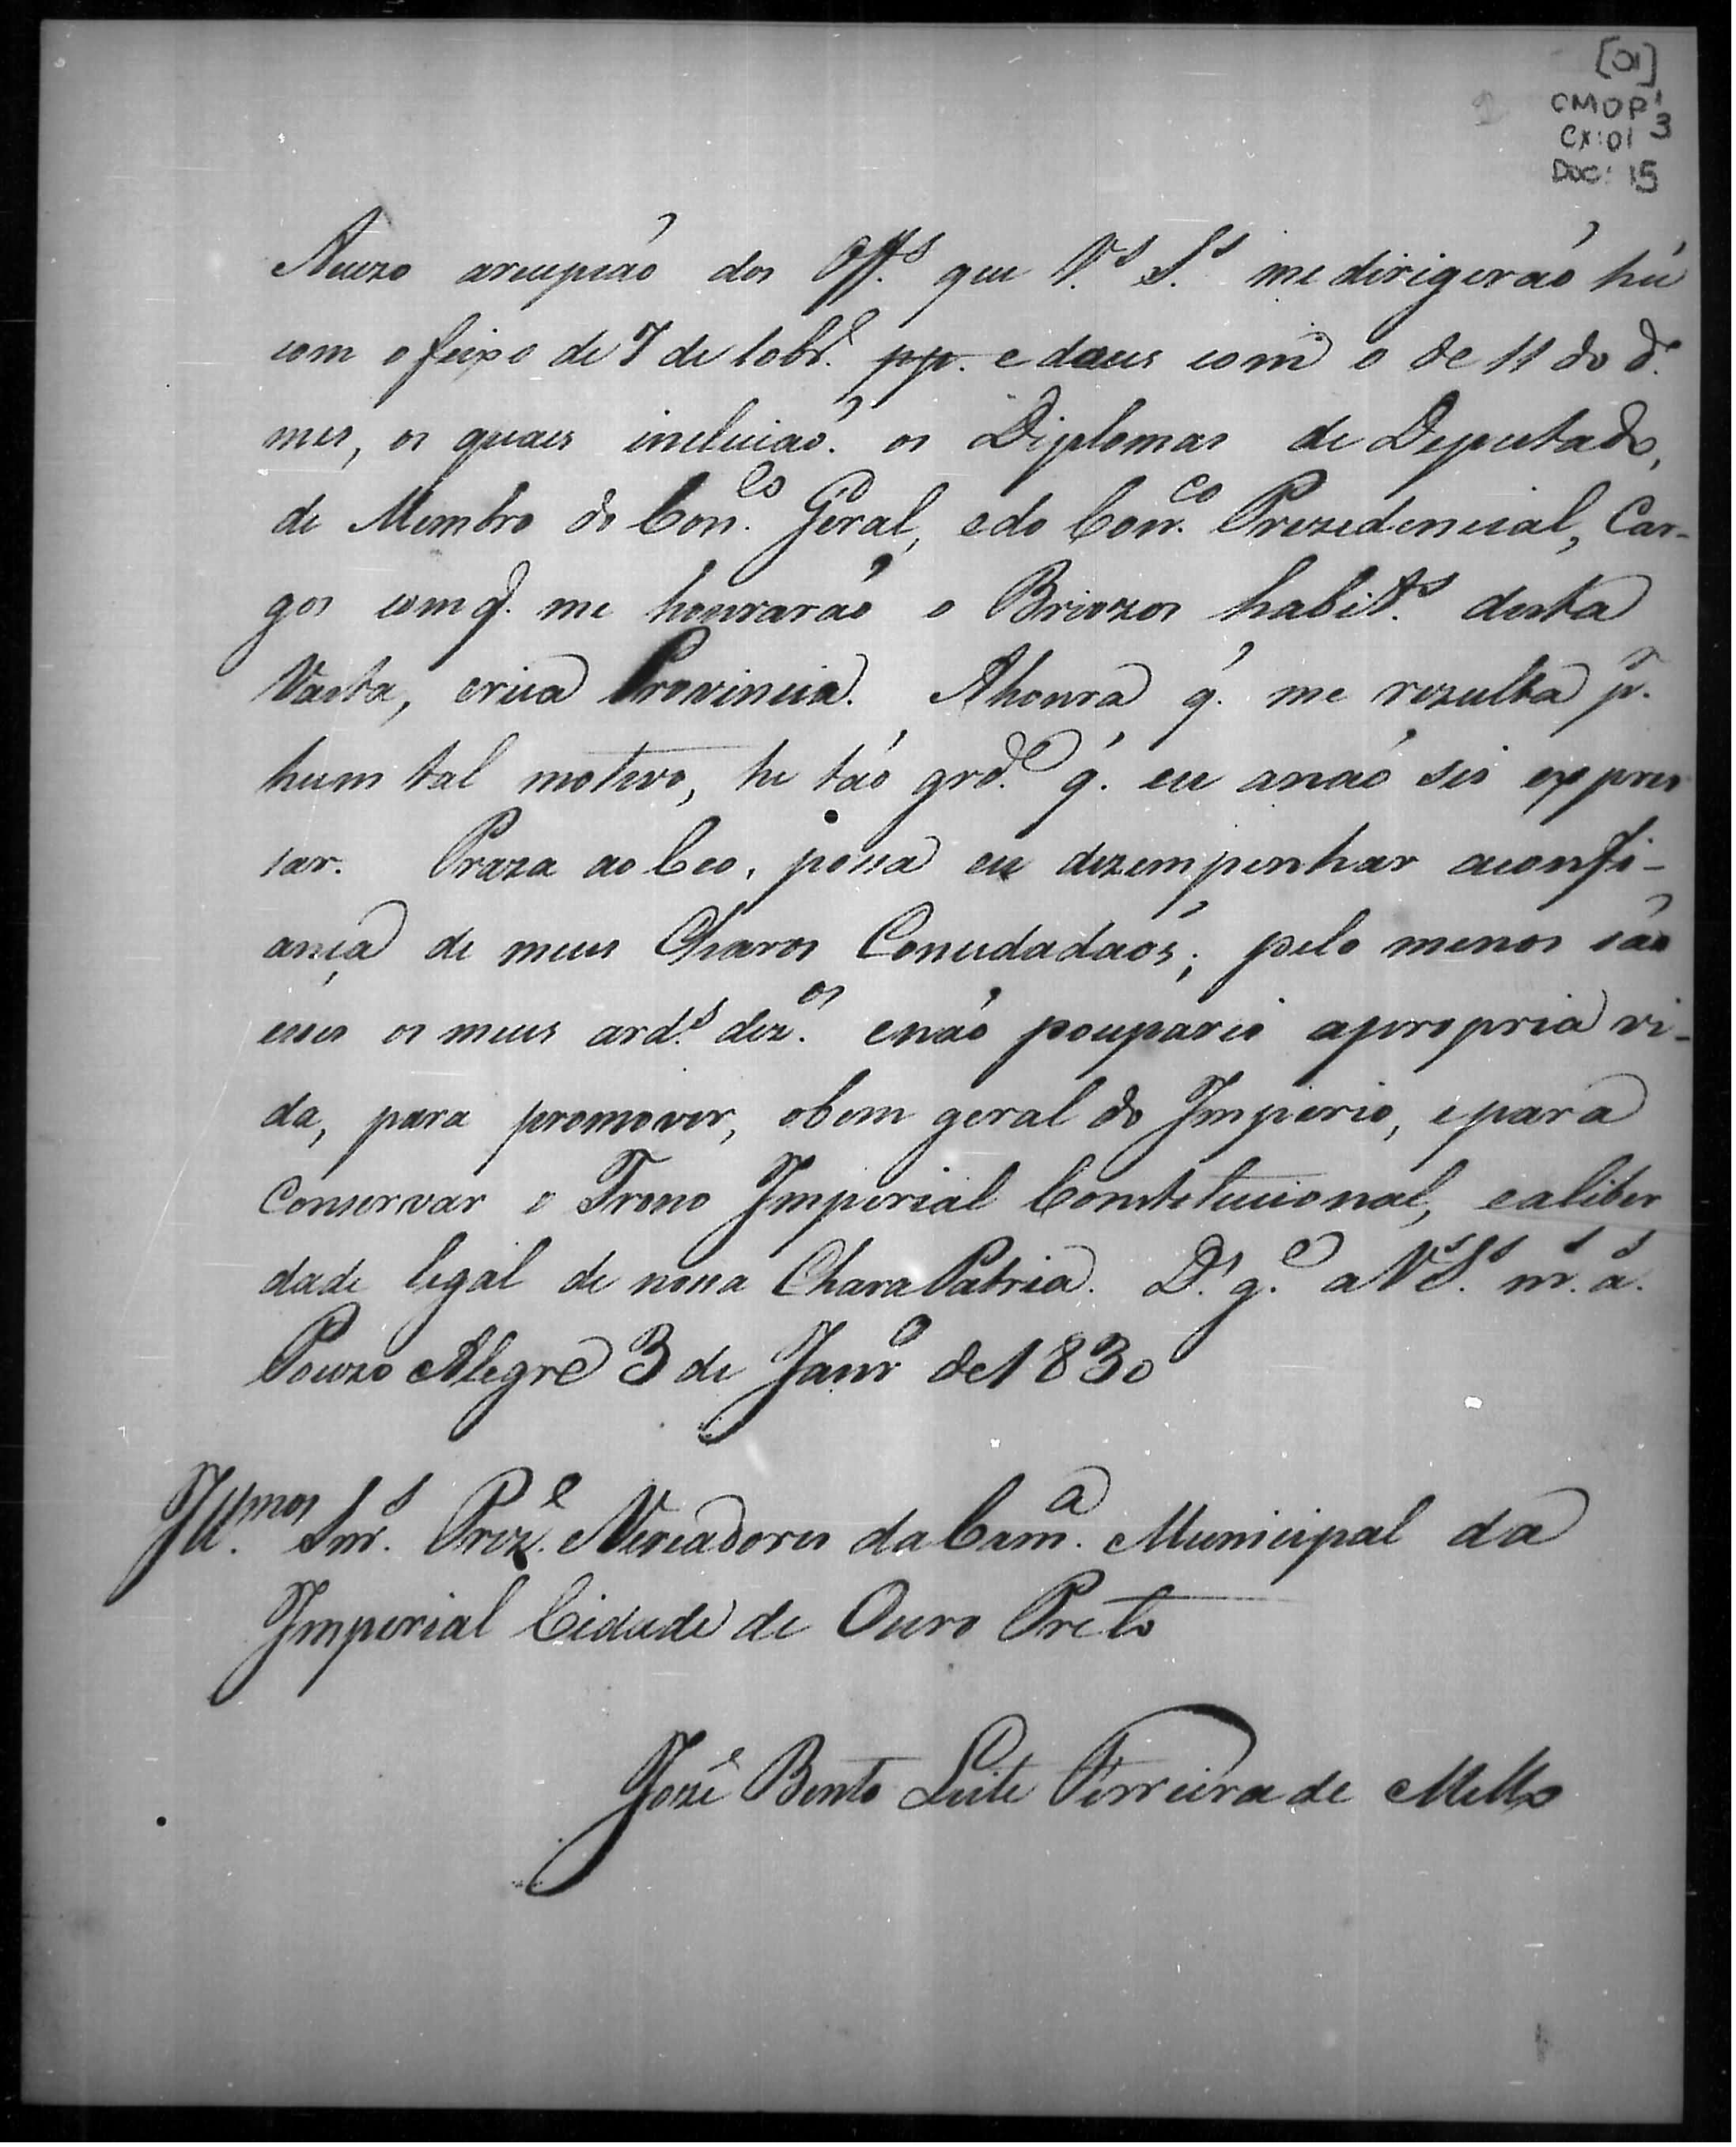 [01]
CMOP1
3
CX: 01
DOC: 15
Acuzo arecepção dos Off.s que V.s S.s me dirigerão hú
com o feixo de 7 de 10br.e pp. e doeus com o de 11 do d.o
mes, os quaes incluião os Diplomas de Deputado,
de Membro do Con.co Geral, e do Con.co Prezedencial, Car-
gos com q. me honrarão o Briozos habit.s desta
Vasta, erica Provincia. Ahonra q. me rezulta p.r
hum tal motivo, he tão grd.e q. eu anão sei expres
sar. Praza ao Ceo, possa eu dezempenhar aconfi-
ança de meus Charos Concidadãos; pelo menos são
esses os meus ard.s dez.os enão pouparei apropria vi-
da, para promover, obem geral do Imperio, epara
Conservar o Trono Imperial Constetucional, ealiber
dade legal de nossa Chara Patria. D.s g.e a V.s S.s m.s a.s
Pouzo Alegre 3 de Janr.o de 1830
Ill.mos Snr.s Prez.e e Vereadores da Cam.a Municipal da
Imperial Cidade de Ouro Preto
José Bento Leite Ferreira de Mello